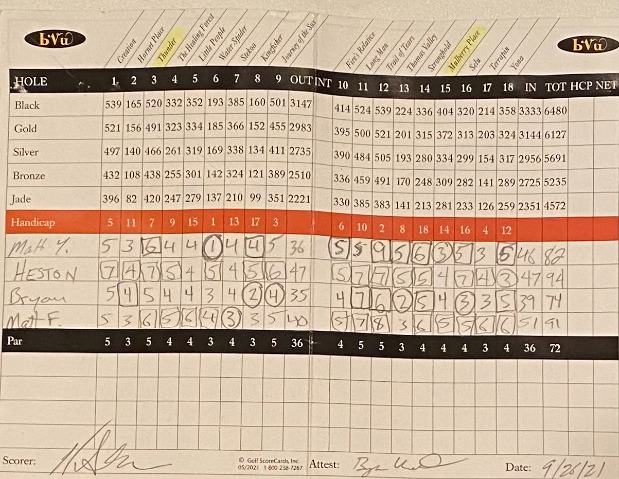 bvu
Creation Hornet Place Thunder The Healing Forest Little People Water Spider Stekoa Kingfisher Journey of the Sun
Fire's Relative Long Man Trail of Tears Thomas Valley Stronghold Mulberry Place Selu Terrapin Yona
bvu
HOLE 1 2 3 4 5 6 7 8 9 OUT INT 10 11 12 13 14 15 16 17 18 IN TOT HCP NET
Black 539 165 520 332 352 193 385 160 501 3147 414 524 539 224 336 404 320 214 358 3333 6480
Gold 521 156 491 323 334 185 366 152 455 2983 395 500 521 201 315 372 313 203 324 3144 6127
Silver 497 140 466 261 319 169 338 134 411 2735 390 484 505 193 280 334 299 154 317 2956 5691
Bronze 432 108 438 255 301 142 324 121 389 2510 336 459 491 170 248 309 282 141 289 2725 5235
Jade 396 82 420 247 279 137 210 99 351 2221 330 385 383 141 213 281 233 126 259 2351 4572
Handicap 5 11 7 9 15 1 13 17 3 6 10 2 8 18 14 16 4 12
Matt Y. 5 3 6 4 4 1 4 4 5 36 5 5 9 5 6 3 5 3 5 46 82
HESTON 7 4 7 5 4 5 4 5 6 47 5 7 7 5 5 4 7 4 3 47 94
Bryan 5 4 5 4 4 3 4 2 4 35 4 7 6 2 5 4 3 3 5 39 74
Matt F. 5 3 6 5 6 4 3 3 5 40 5 7 8 3 6 5 5 6 6 51 91
Par 5 3 5 4 4 3 4 3 5 36 4 5 5 3 4 4 4 3 4 36 72
Scorer: © Golf ScoreCards, Inc. Attest: Date: 9/26/21
05/2021 1-800-238-7267